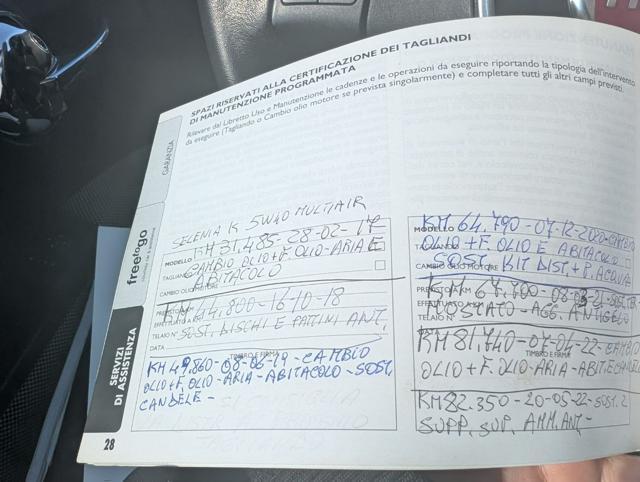 SPAZI RISERVATI ALLA CERTIFICAZIONE DEI TAGLIANDI
DI MANUTENZIONE PROGRAMMATA
Rilevare dal Libretto Uso e Manutenzione le cadenze e le operazioni da eseguire riportando la tipologia dell'intervento
da eseguire (Tagliando o Cambio olio motore se prevista singolarmente) e completare tutti gli altri campi previsti.
GARANZIA
freetogo
SERVIZI
DI ASSISTENZA
28
SELENIA K 5W40 MULTIAIR
MODELLO
KM 31.485-28-02-17
TAGLIANDO
CAMBIO OLIO+F.OLIO-ARIA E
ABITACOLO
CAMBIO OLIO MOTORE
PRESSO KM
KM 44.800-16-10-18
EFFETTUATO A KM
TELAIO N°
SOST. DISCHI E PATTINI ANT.
DATA
TIMBRO E FIRMA
KM 49.860-08-06-19-CAMBIO
OLIO+F.OLIO-ARIA-ABITACOLO-SOST.
CANDELE-
KM 64.790-07-12-2020-CAMBIO
MODELLO
OLIO+F.OLIO E ABITACOLO
TAGLIANDO
SOST. KIT DIST.+F.ACQUA
CAMBIO OLIO MOTORE
PRESSO KM
KM 67.700-08-03-21-SOST.
EFFETTUATO A KM
TELAIO N°
-AGG. ANTIGELO
KM 81.740-07-04-22-CAMBIO
TIMBRO E FIRMA
OLIO+F.OLIO-ARIA-ABIT.E CANDELE
KM 82.350-20-05-22-SOST.2
SUPP. SUP. AMM. ANT-